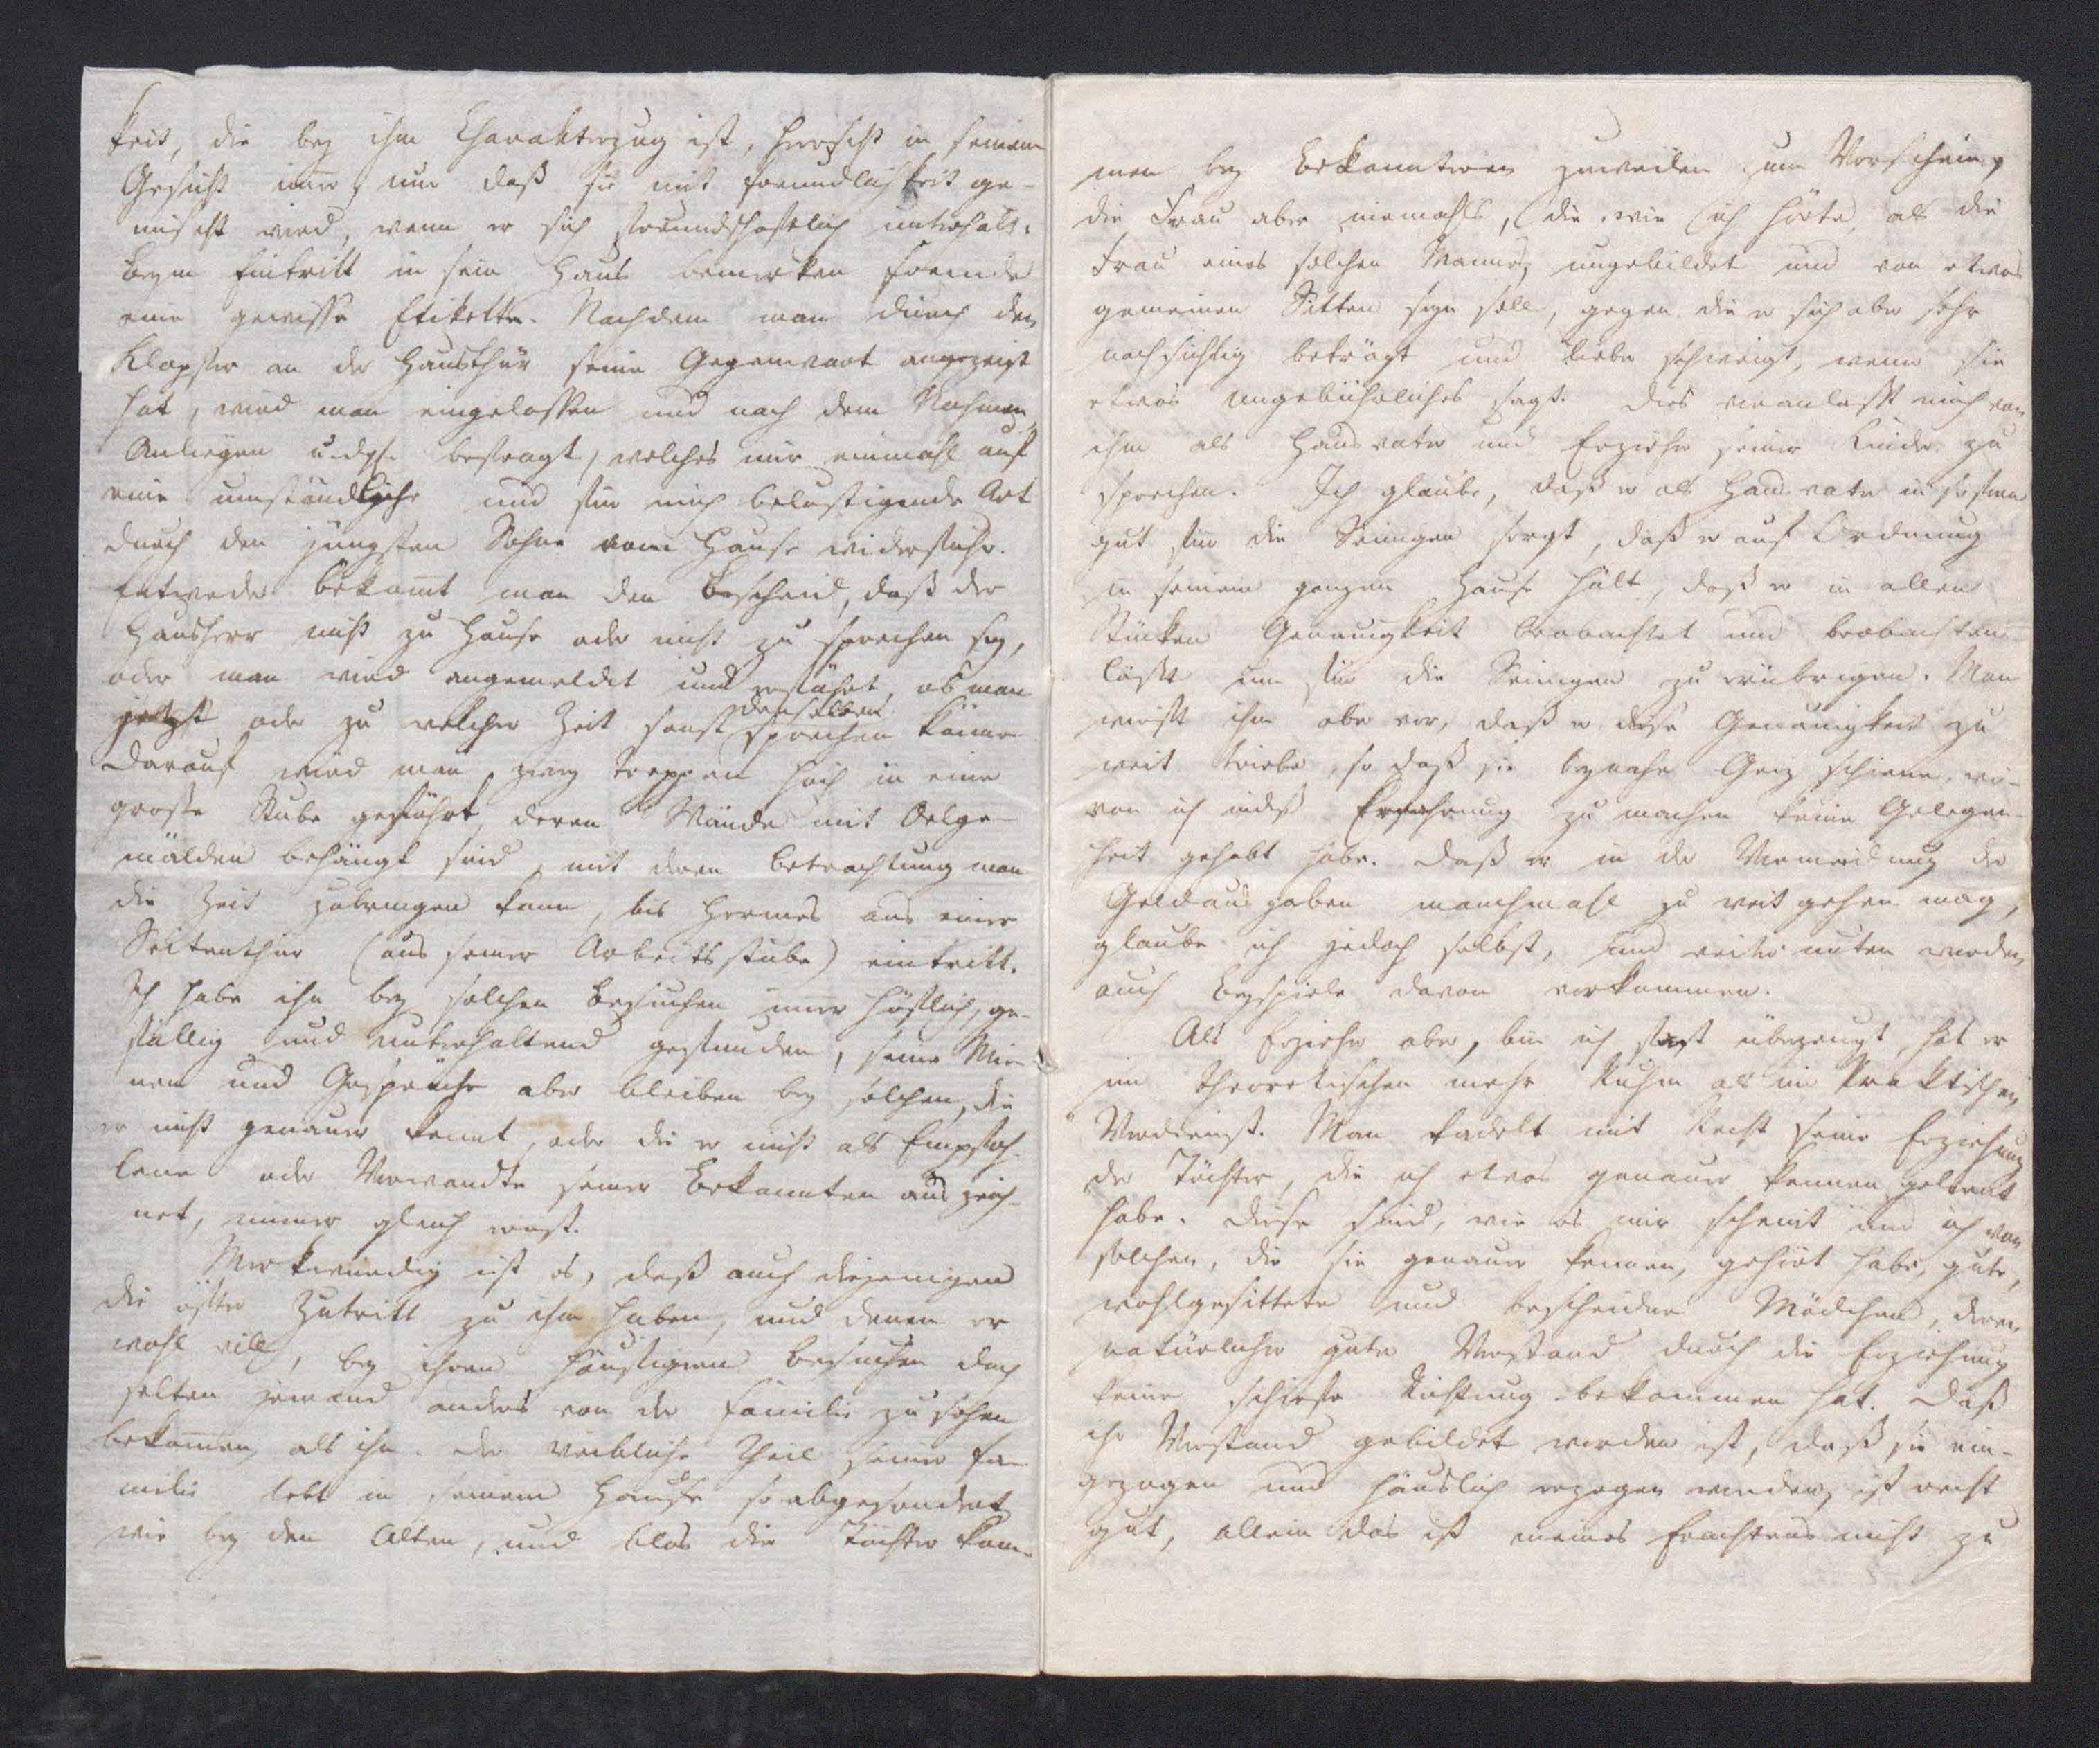 keit, die bey ihm Charakterzug ist, herrscht in seinem
Gesicht imer, nur daß sie mit Freundlichkeit ge-
mischt wird, wenn er sich freundschaftlich unterhält.
Beym Eintritt in sein Haus bemerken Fremde
eine gewisse Etikette. Nachdem man durch den
Klopfer an der Hausthür seine Gegenwart angezeigt
hat, wird man eingelassen und nach dem Nahmen,
Anliegen u. dgl. befragt, welches mir einmahl auf
eine umständliche und für mich belustigende Art
durch den jüngsten Sohn vom Hause widerfuhr.
Entweder bekomt man den Bescheid, daß der
Hausherr nicht zu Hause oder nicht zu sprechen sey,
oder man wird angemeldet und erfährt, ob man
jetzt oder zu welcher Zeit sonst denselben sprechen könne
Darauf wird man zwey Treppen hoch in eine
große Stube geführt, deren Wände mit Oelge-
mälden behängt sind, mit deren Betrachtung man
die Zeit zubringen kann, bis Hermes aus einer
Seitenthür (aus seiner Arbeitsstube) eintritt.
Ich habe ihn bey solchen Besuchen imer höflich, ge-
fällig und unterhaltend gefunden, seine Mie-
nen und Gespräche aber bleiben bey solchen, die
er nicht genauer kennt, oder die er nicht als Empfoh-
lene oder Verwandte seiner Bekannten auszeich-
net, immer gleich ernst.
Merkwürdig ist es, daß auch diejenigen
die öfter Zutritt zu ihm haben, und denen er
wohl will, bey ihren häufigern Besuchen doch
selten jemand anders von der Familie zu sehen
bekomen, als ihn. Der weibliche Theil seiner Fa-
milie lebt in seinem Hause so abgesondert
wie bey den Alten, und blos die Töchter kom-
men bey Bekanntern zuweilen zum Vorschein,
die Frau aber niemahls, (die, wie ich hörte, als die
Frau eines solchen Mannes, ungebildet und von etwas
gemeinen Sitten seyn soll, gegen die er sich aber sehr
nachsichtig beträgt und lieber schweigt, wenn sie
etwas Ungebührliches sagt. Dies veranlaßt mich von
ihm als Hausvater und Erzieher seiner Kinder zu
sprechen. Ich glaube, daß er als Hausvater in so fern
gut für die Seinigen sorgt, daß er auf Ordnung
in seinem ganzen Hause hält, daß er in allen
Stücken Genauigkeit beobachtet und beobachten
läßt um für die Seinigen zu erübrigen. Man
wirft ihm aber vor, daß er diese Genauigkeit zu
weit triebe, so daß sie beynahe Geiz schiene, wo-
von ich indeß Erfahrung zu machen keine Gelegen-
heit gehabt habe. Daß er in der Vermeidung der
Geldausgaben manchmahl zu weit gehen mag,
glaube ich jedoch selbst, und weiter unten werden
auch Beyspiele davon vorkommen.
Als Erzieher aber, bin ich fest überzeugt, hat er
im Theoretischen mehr Ruhm als im Praktischen
Verdienst. Man tadelt mit Recht seine Erziehung
der Töchter, die ich etwas genauer kennen gelernt
habe. Diese sind, wie es mir scheint und ich von
solchen, die sie genauer kennen, gehört habe, gute,
wohlgesittete und bescheidne Mädchen, deren
natürlicher guter Verstand durch die Erziehung
keine schiefe Richtung bekommen hat. Daß
ihr Verstand gebildet worden ist, daß sie ein-
gezogen und häuslich erzogen worden, ist recht
gut, allein das ist meines Erachtens nicht zu